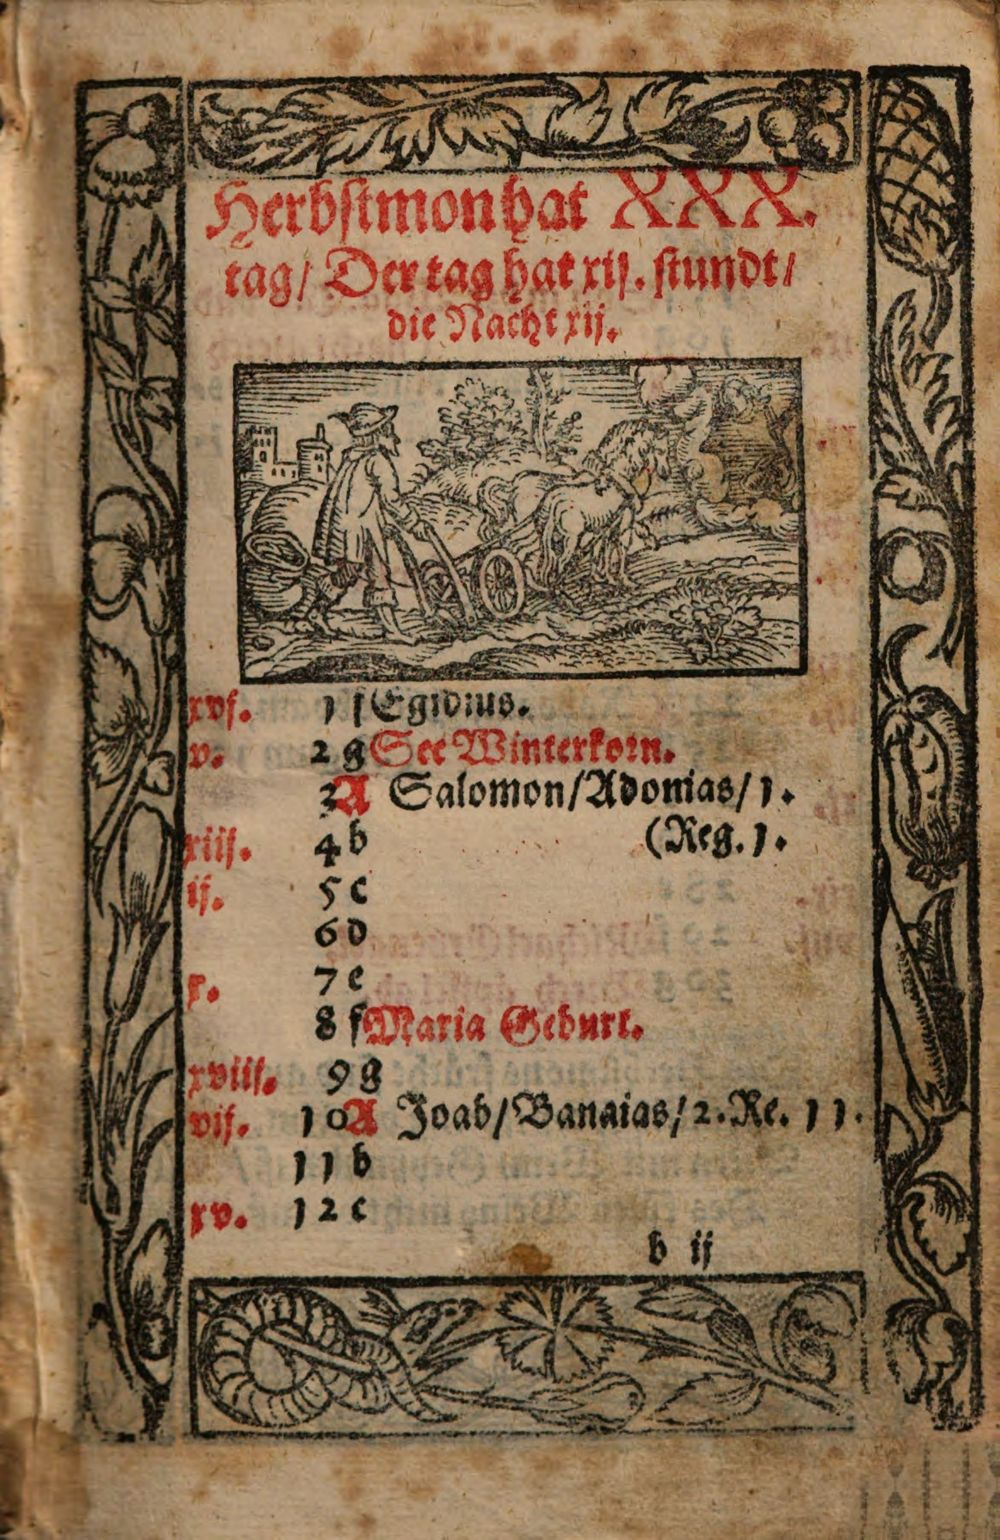 Herbstmon hat XXX.
tag/ Der tag hat xij. stundt/
die Nacht xij.
xvj. 1 f Egidius.
v. 2 g See Winterkorn.
3 A Salomon/Adonias/1.
xiij. 4 b (Reg. 1.
ij. 5 c
6 d
x. 7 e
8 f Maria Geburt.
xviij. 9 g
vij. 10 A Joab/Banaias/2. Re. 11.
11 b
xv. 12 c
b ij